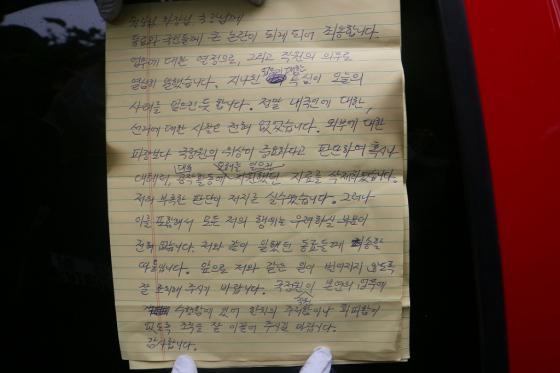 원장님, 차장님, 국장님께
동료와 국민들께 큰 논란이 되게 되어 죄송합니다.
업무에 대한 열정으로, 그리고 직원의 의무로
열심히 일했습니다. 지나친 업무에 대한 욕심이 오늘의
사태를 일으킨 듯 합니다. 정말 내국인에 대한,
선거에 대한 사찰은 전혀 없었습니다. 외부에 대한
파장보다 국정원의 위상이 중요하다고 판단하여 혹시나
대테러, 대북 공작활동에 오해를 일으킨 지원했던 자료를 삭제하였습니다.
저의 부족한 판단이 저지른 실수였습니다. 그러나
이를 포함해서 모든 저의 행위는 우려하실 부분이
전혀 없습니다. 저와 같이 일했던 동료들께 죄송할
따름입니다. 앞으로 저와 같은 일이 번 않도록
잘 조치해 주시기 바랍니다. 국정원이 본연의 업무에
수행함에 있어 한치의 주저함이나 회피함이
없도록 조직을 잘 이끌어 주시길 바랍니다.
감사합니다.